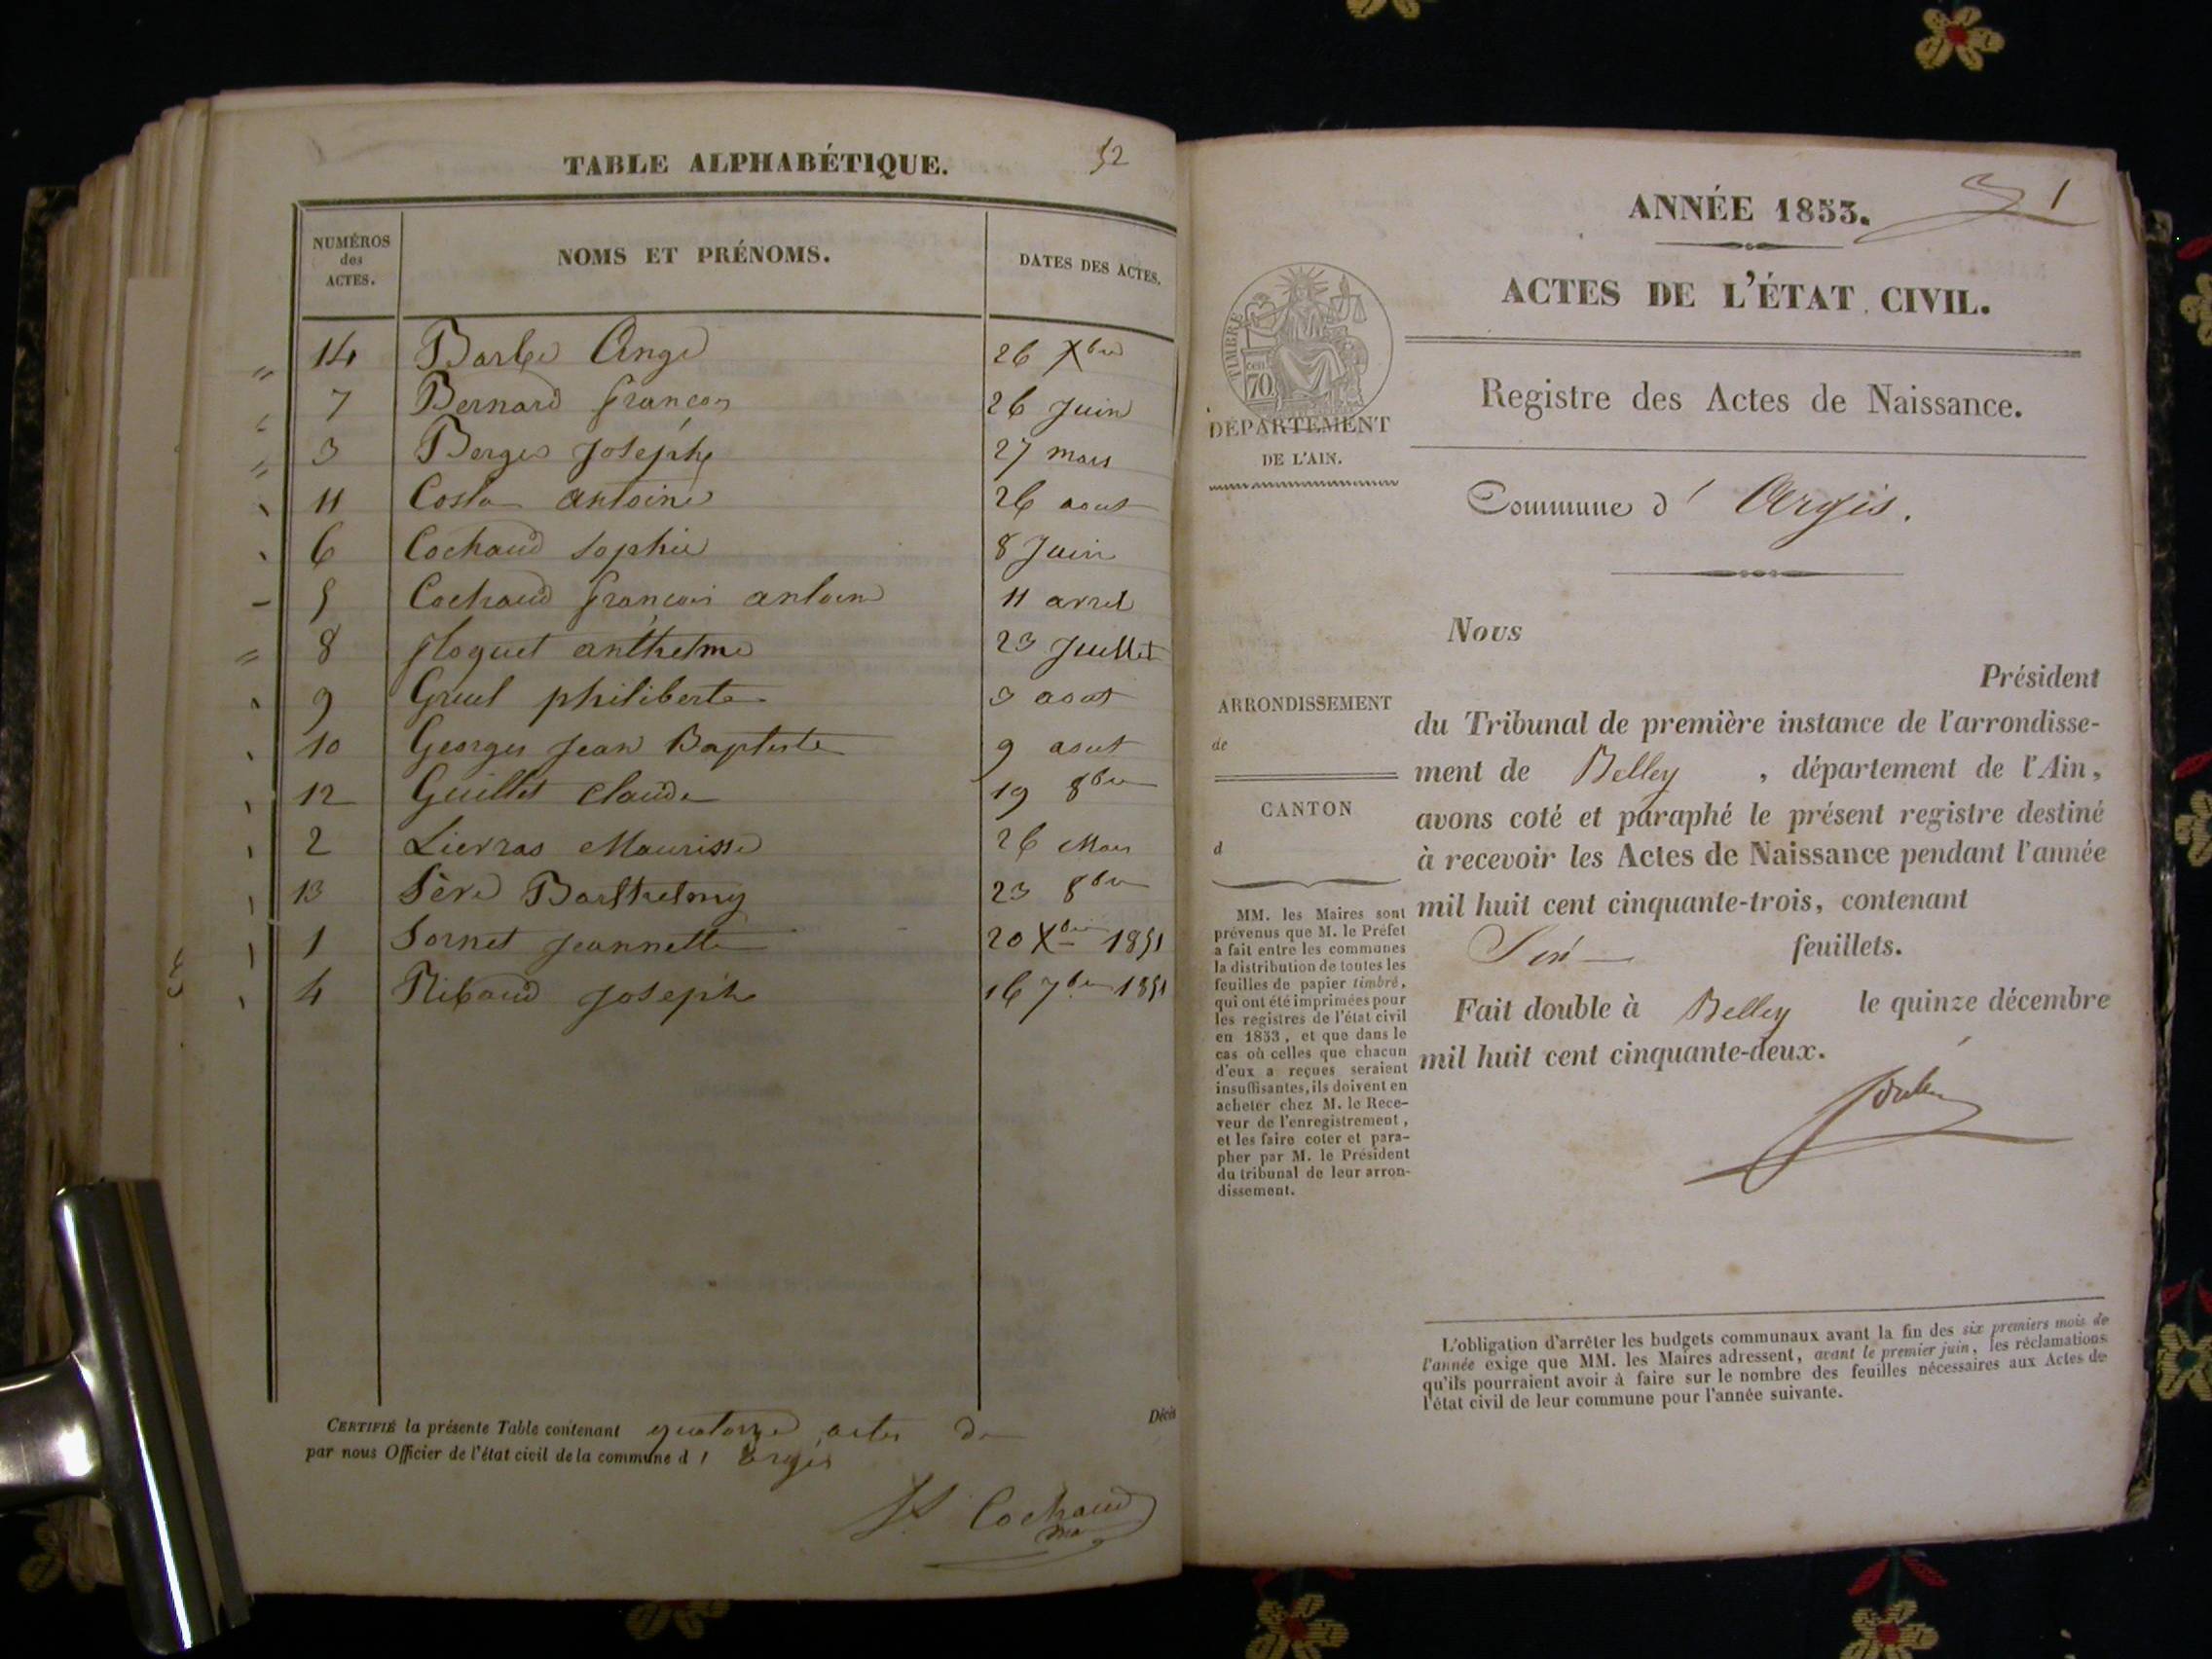 TABLE ALPHABÉTIQUE. 52
NUMÉROS des ACTES. NOMS ET PRÉNOMS. DATES DES ACTES.
14 Barbe Ange 26 Xbre
7 Bernard françois 26 Juin
3 Berger Josephe 27 mars
11 Costa antoine 26 aout
6 Cochaud sophie 8 Juin
5 Cochaud françois antoine 11 avril
8 floquet anthelme 23 Juillet
9 Gruel philiberte 3 aout
10 Georges Jean Baptiste 9 aout
12 Guillet Claude 19 8bre
2 Lievras Maurisse 26 Mars
13 Sève Barthelmy 23 8bre
1 Sornet Jeannette 20 Xbre 1851
4 Ribaud Josephe 16 7bre 1851
CERTIFIÉ la présente Table contenant quatorze actes de Décès
par nous Officier de l'état civil de la commune d' argis
Cochaud
ANNÉE 1853. 1
ACTES DE L'ÉTAT CIVIL.
TIMBRE
70
DÉPARTEMENT
DE L'AIN.
Registre des Actes de Naissance.
Commune d' Argis.
ARRONDISSEMENT
de
CANTON
d
MM. les Maires sont
prévenus que M. le Préfet
a fait entre les communes
la distribution de toutes les
feuilles de papier timbré,
qui ont été imprimées pour
les registres de l'état civil
en 1853, et que dans le
cas où celles que chacun
d'eux a reçues seraient
insuffisantes, ils doivent en
acheter chez M. le Rece-
veur de l'enregistrement,
et les faire coter et para-
pher par M. le Président
du tribunal de leur arron-
dissement.
Nous
Président
du Tribunal de première instance de l'arrondisse-
ment de Belley, département de l'Ain,
avons coté et paraphé le présent registre destiné
à recevoir les Actes de Naissance pendant l'année
mil huit cent cinquante-trois, contenant
feuillets.
Fait double à Belley le quinze décembre
mil huit cent cinquante-deux.
L'obligation d'arrêter les budgets communaux avant la fin des six premiers mois de
l'année exige que MM. les Maires adressent, avant le premier juin, les réclamations
qu'ils pourraient avoir à faire sur le nombre des feuilles nécessaires aux Actes de
l'état civil de leur commune pour l'année suivante.